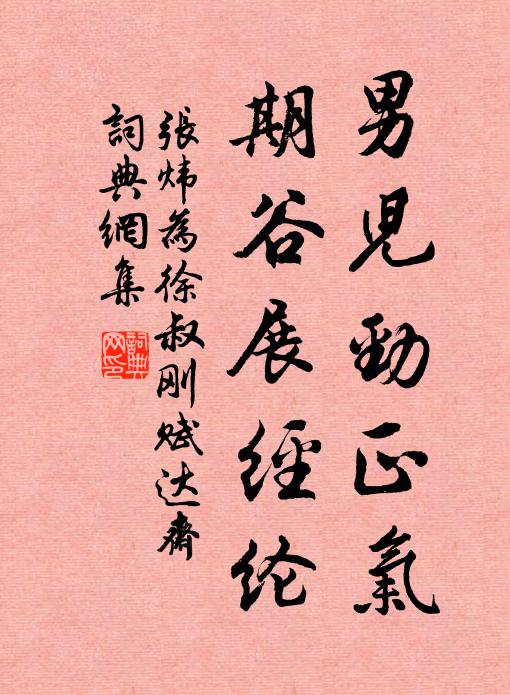 男児勁正氣
期谷展經纶
張炜為徐叔刚赋达齋
詞典網集
詞典网印